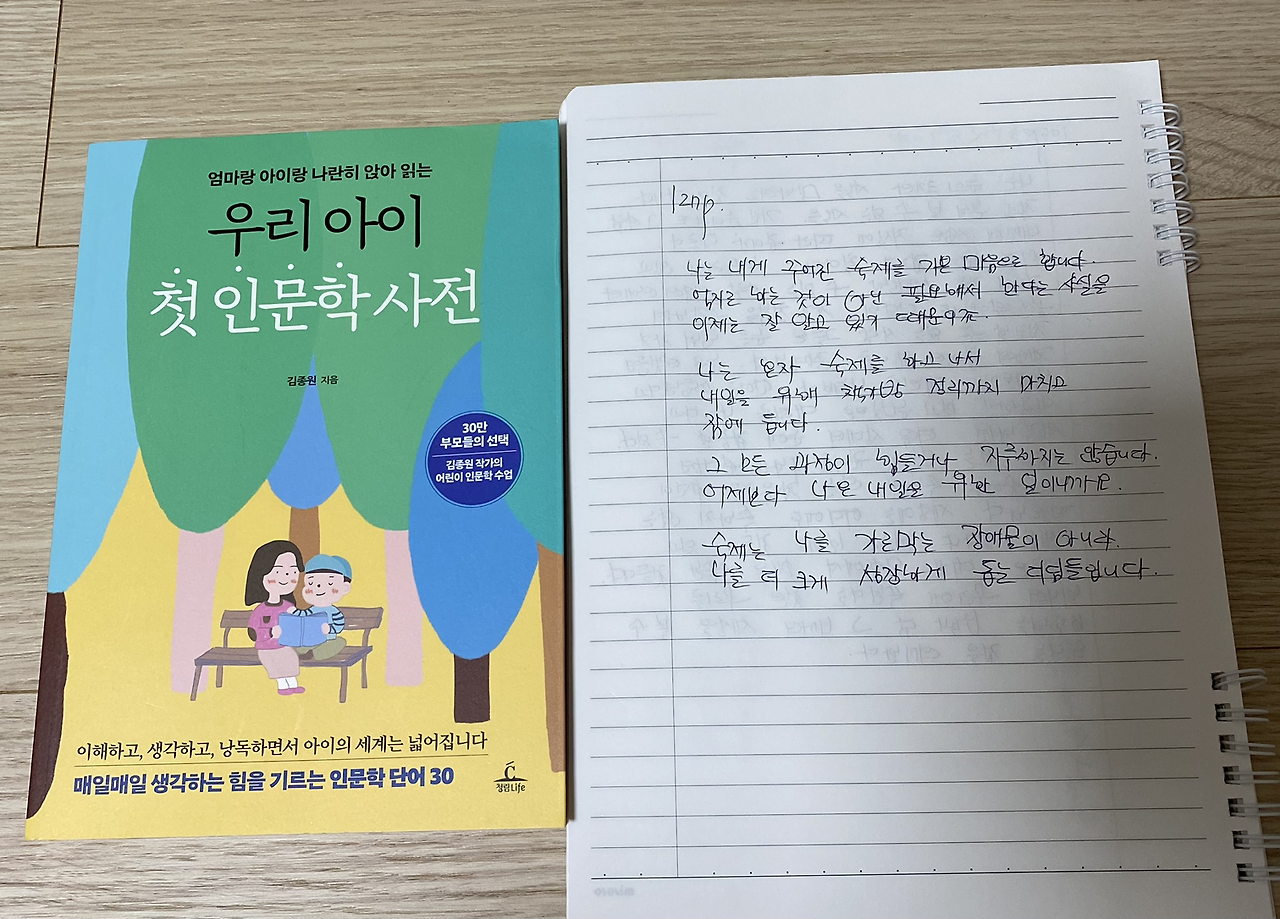 엄마랑 아이랑 나란히 앉아 읽는
우리 아이
첫 인문학 사전
김종원 지음
30만
부모들의 선택
김종원 작가의
어린이 인문학 수업
이해하고, 생각하고, 낭독하면서 아이의 세계는 넓어집니다
매일매일 생각하는 힘을 기르는 인문학 단어 30
청림Life
127p.
나는 내게 주어진 숙제를 기쁜 마음으로 합니다.
억지로 하는 것이 아닌 필요해서 한다는 사실을
이제는 잘 알고 있기 때문이죠.
나는 혼자 숙제를 하고 나서
내일을 위해 책가방 정리까지 마치고
잠에 듭니다.
그 모든 과정이 힘들거나 지루하지는 않습니다.
어제보다 나은 내일을 위한 일이니까요.
숙제는 나를 가로막는 장애물이 아니라.
나를 더 크게 성장하게 돕는 디딤돌입니다.